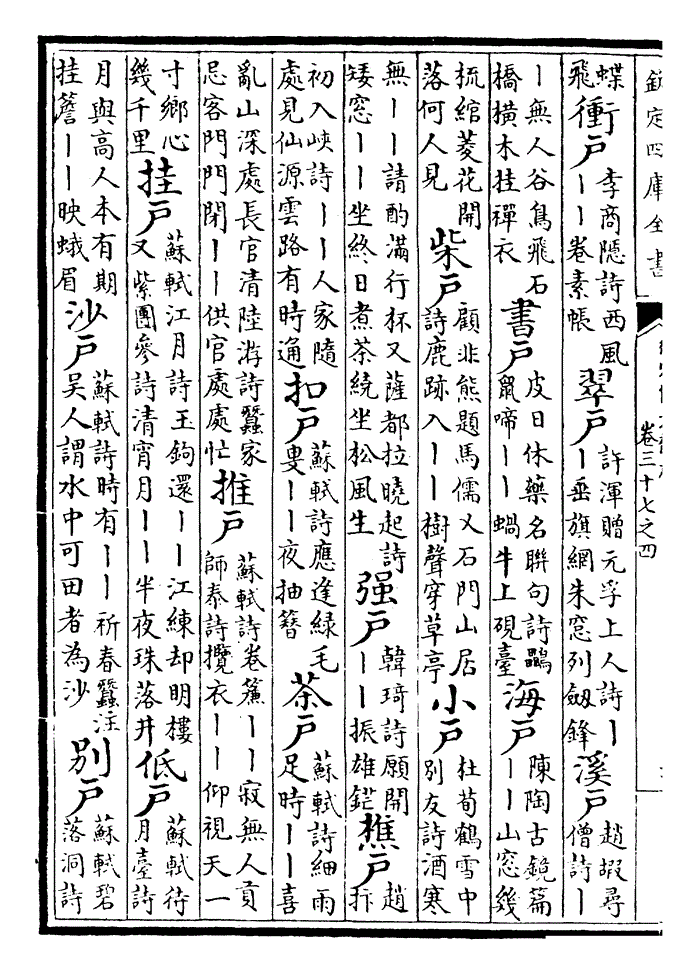 欽定四庫全書
卷三十七之四
蝶飛衝戶李商隱詩西風丨丨卷素帳翠戶許渾贈元孚上人詩丨丨垂旗網朱窓列劔鋒溪戶趙嘏尋僧詩丨
丨無人谷鳥飛石橋橫木挂禪衣書戶皮日休藥名聯句詩鸓鼠啼丨丨蝸牛上硯臺海戶陳陶古鏡篇丨丨山窓幾
梳綰菱花開落何人見柴戶顧非熊題馬儒乂石門山居詩鹿跡入丨丨樹聲穿草亭小戶杜荀鶴雪中別友詩酒寒
無丨丨請酌滿行杯又薩都拉曉起詩矮窓丨丨坐終日煮茶繞坐松風生强戶韓琦詩願開丨丨振雄鎧樵戶趙抃
初入峽詩丨丨人家隨處見仙源雲路有時通扣戶蘇軾詩應逢綠毛叟丨丨夜抽簪茶戶蘇軾詩細雨足時丨丨喜
亂山深處長官清陸游詩蠶家忌客門門閉丨丨供官處處忙推戶蘇軾詩卷簾丨丨寂無人貢師泰詩攬衣丨丨仰視天一
寸鄉心幾千里挂戶蘇軾江月詩玉鉤還丨丨江練却明樓又紫團參詩清宵月丨丨半夜珠落井低戶蘇軾待月臺詩
月與高人本有期挂簷丨丨映蛾眉沙戶蘇軾詩時有丨丨祈春蠶注吳人謂水中可田者為沙別戶蘇軾碧落洞詩